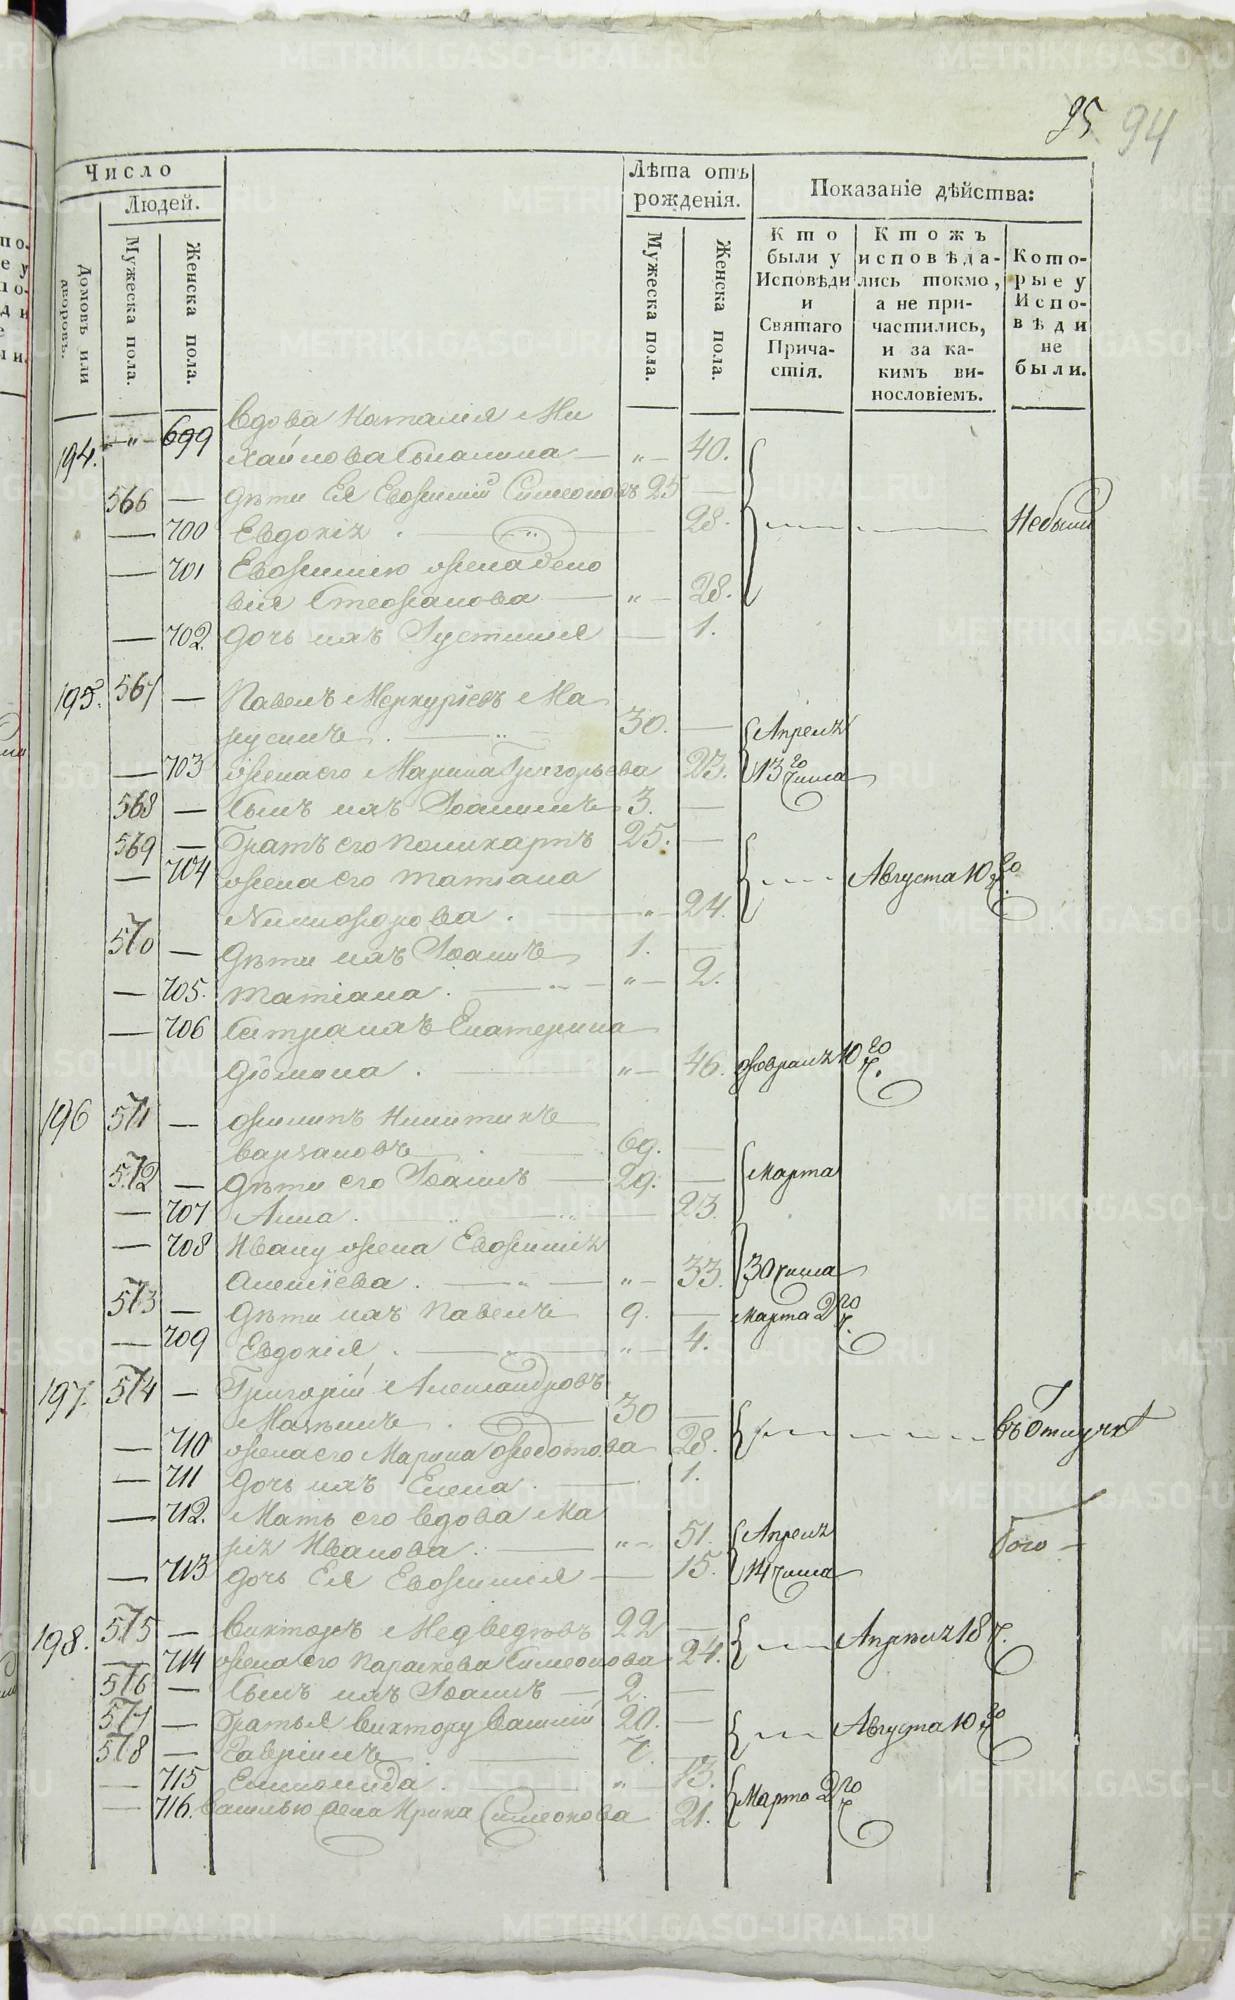 95 94
Число
Людей.
Домовъ или дворовъ.
Мужеска пола.
Женска пола.
Лѣта отъ рожденія.
Мужеска пола.
Женска пола.
Показаніе дѣйства:
Кто были у Исповѣди и Святаго Причастія.
Ктожъ исповѣдались токмо, а не причастились, и за какимъ винословіемъ.
Которые у Исповѣди не были.
194. — " — 699 Вдова Наталія Ми
хайлова — " — 40.
566 — Дѣти Ея Евѳимій Симеоновъ 25 —
— 700 Евдокія . — " — 28. Небыли
— 701 Евѳимію жена
Стефанова — " — 28.
— 702. Дочь ихъ Іустинія — 1.
195. 567 — Павелъ Меркуріевъ Ма
русинъ . — " 30. — Апреля
— 703 жена его Марина Григорьева 23. 13го числа
568 — Сынъ ихъ Іоаннъ 3. —
569 — Братъ его Поликарпъ 25. —
— 704 жена его Татіана Августа 10го ч.
Никифорова . — " — 24.
570 — Дѣти ихъ Іоаннъ 1. —
— 705. Татіана . — " — " — 2.
— 706 Сестра ихъ Екатерина
Дѣвица . — " — 46. февраля 10го ч.
196 571 — Филиппъ Никитинъ
69. —
572 — Дѣти его Іоаннъ — 29. — Марта
— 707 Анна . — " — 23.
— 708 Ивану жена Евѳимія
Алексіева . — " — " — 33. 30 числа
573 — Дѣти ихъ Павелъ 9. — Марта 2го ч.
— 709 Евдокія . — " — 4.
197. 574 — Григорій Александровъ
30 — въ Отлучкѣ
— 710 жена его Марина Федотова 28.
— 711 Дочь ихъ Елена . — 1.
— 712. Мать его вдова Ма
рія Иванова . — " — 51. Апреля Того —
— 713 Дочь Ея Евѳимія — 15. 14 числа
198. 575 — Викторъ Медведевъ 22 — Апреля 18 ч.
— 714 жена его Параскева Симеонова 24.
576 — Сынъ ихъ Іоаннъ — 2. —
577 — Братья Виктору Василій 20. — Августа 10го
578 — Гавріилъ . — 7. —
— 715 . — " — 13. Марта 2го ч.
— 716. Василью жена Ирина Симеонова 21.